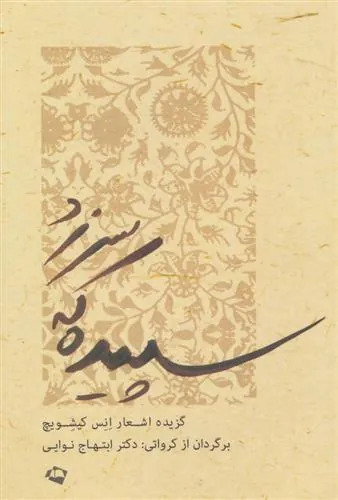 سپیده که سر زد
گزیده اشعار اِنِس کیشِویچ
برگردان از کرواتی: دکتر ابتهاج نوایی